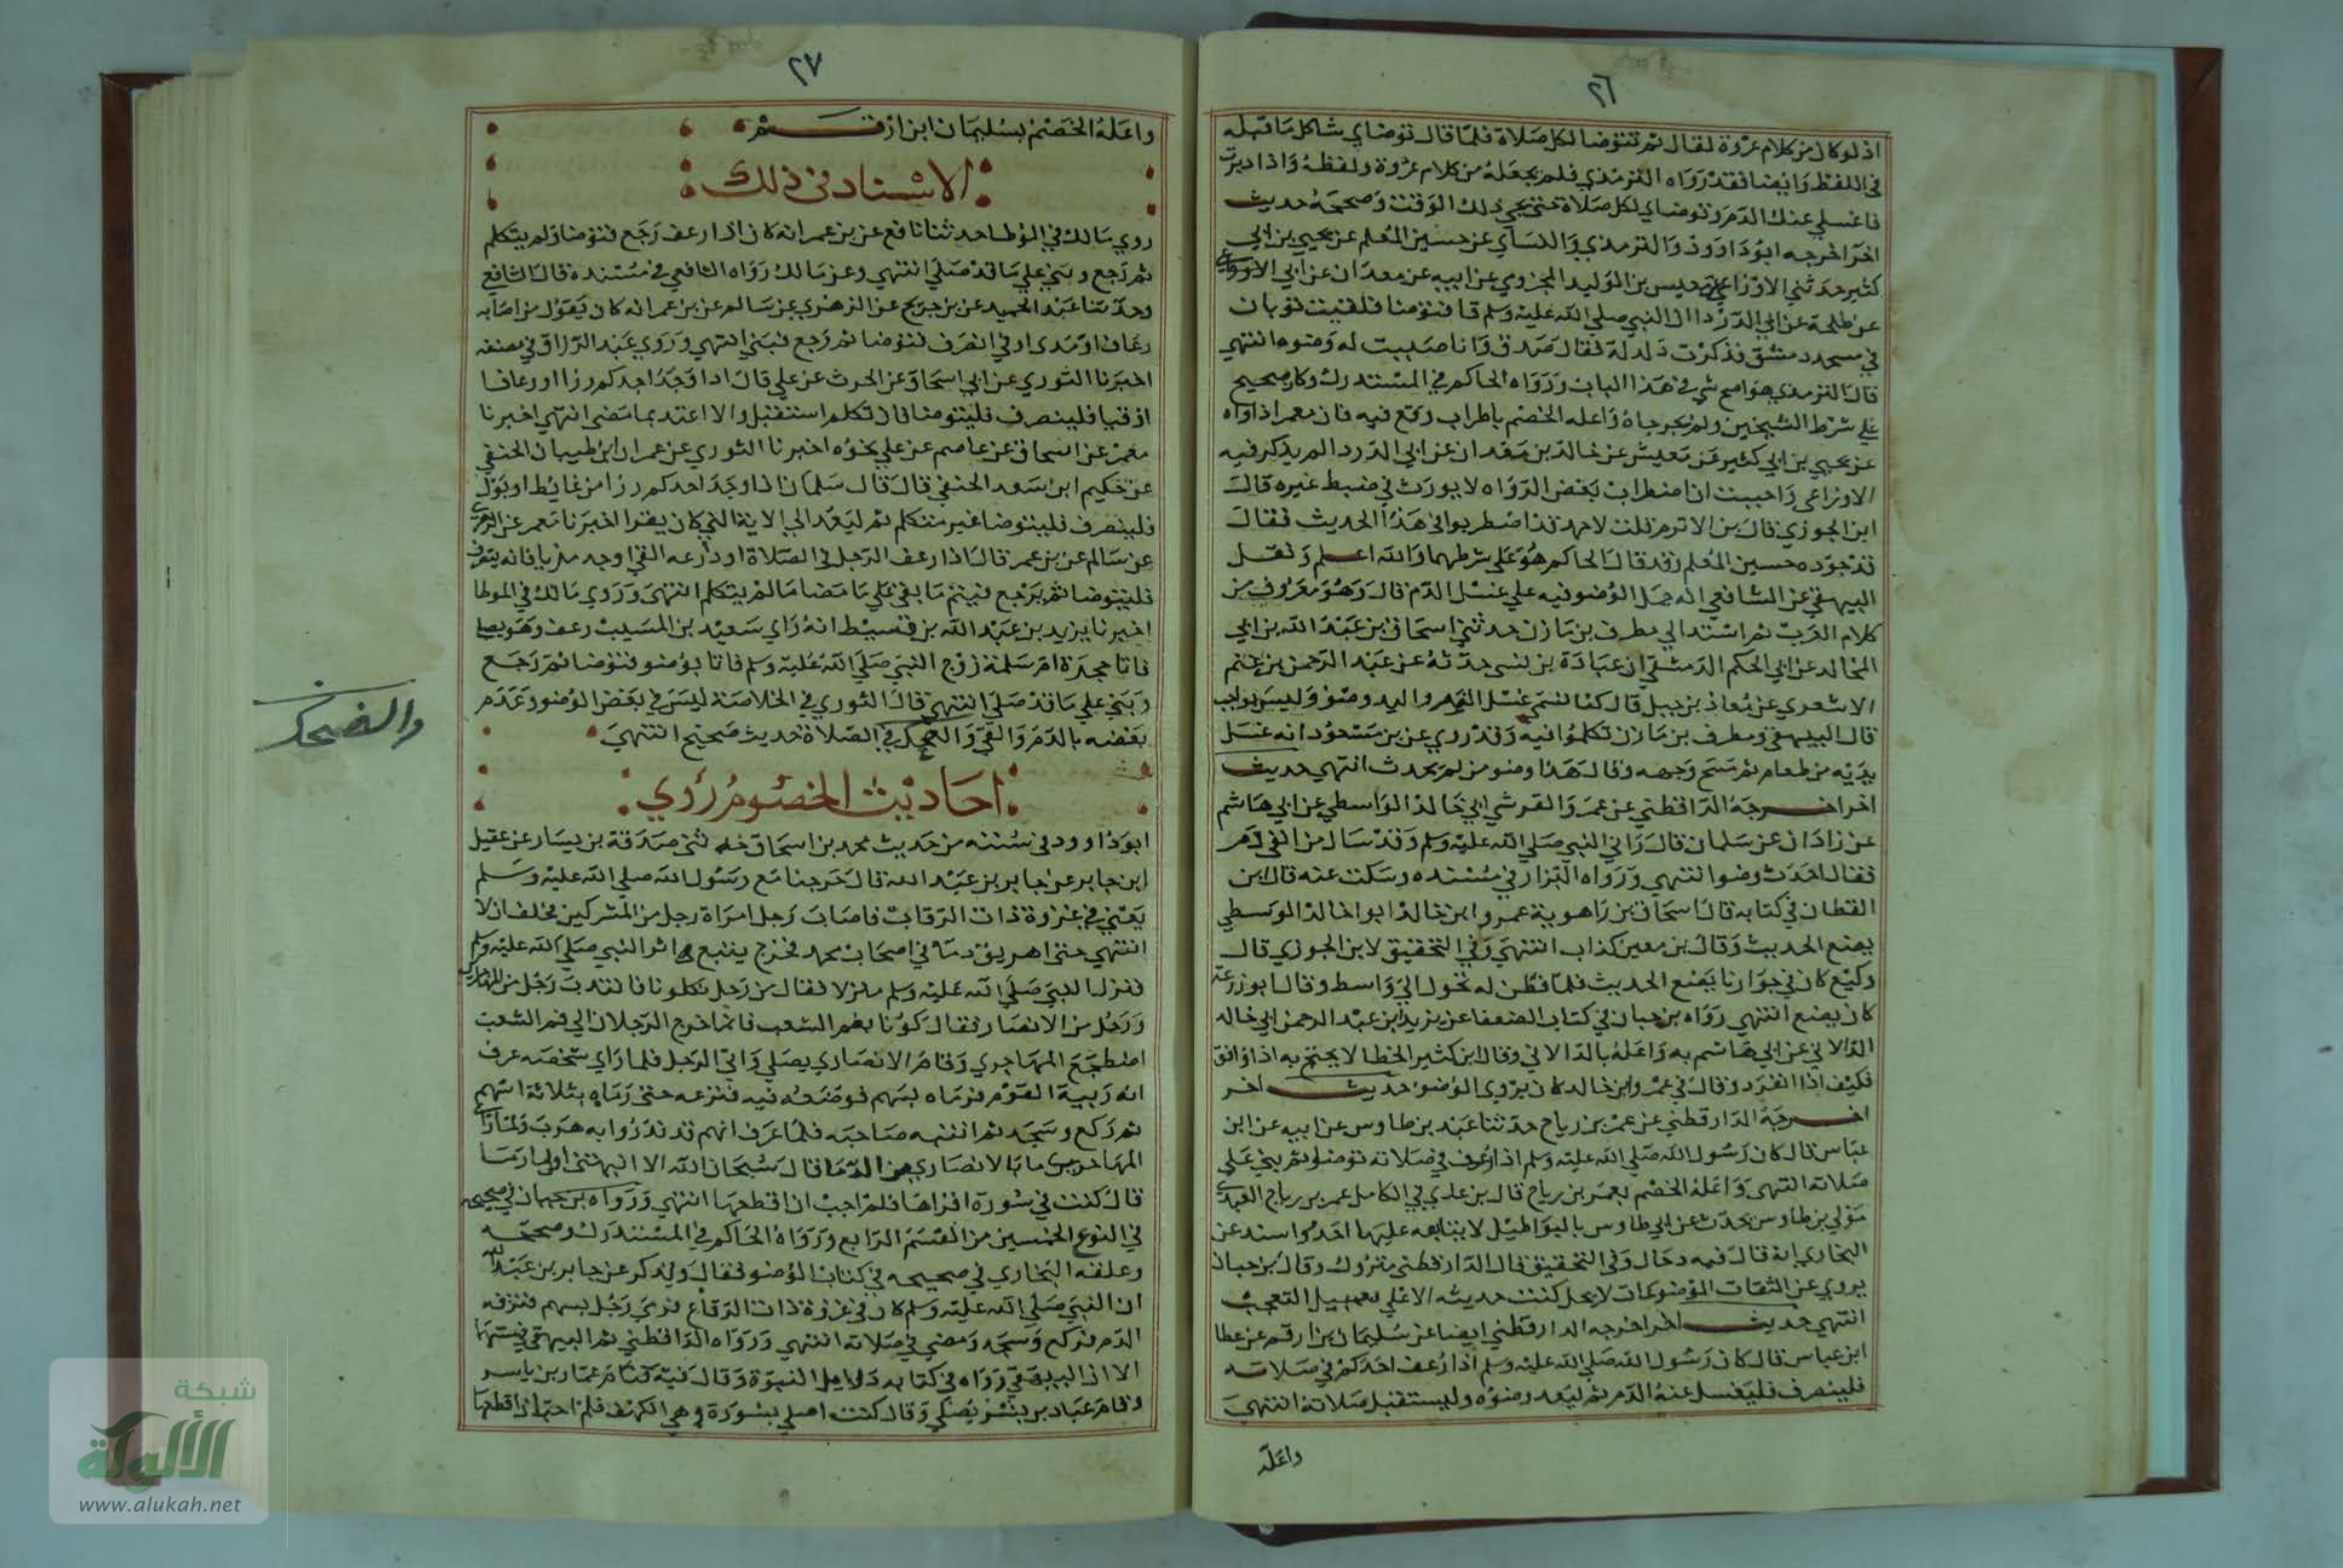 ٢٦
اذ لو كان من كلام عروة لقال ثم تتوضا لكل صلاة فلما قال توضاي شاكل ما قبله
في اللفظ وايضا فقد رواه الترمذي فلم يجعله من كلام عروة ولفظه واذا ادبرت
فاغسلي عنك الدم وتوضاي لكل صلاة حتى يجي ذلك الوقت وصححه حديث
اخر اخرجه ابو داوود والترمذي والنساي عن حسين المعلم عن يحيي بن ابي
كثير حدثني الاوزاعي عن يعيس بن الوليد المخزوي عن ابيه عن معدان عن ابي
عن طلحة عن ابي الدردا ان النبي صلي الله عليه وسلم قا فتوضا فلقيت ثوبان
في مسجد دمشق فذكرت ذلك له فقال صدق وانا صببت له وضوه انتهي
قال الترمذي هو اصح شي في هذا الباب ورواه الحاكم في المستدرك وقال صحيح
علي شرط الشيخين ولم يخرجاه واعله الخصم باطراب وقع فيه فان معمرا رواه
عن يحيي بن ابي كثير عن يعيش عن خالد بن معدان عن ابي الدردا لم يذكر فيه
الاوزاعي واجيبت ان اضطراب بعض الرواه لا يورث في ضبط غيره قال
ابن الجوزي قال بن الاثرم قلت لاحمد قد اضطربوا في هذا الحديث فقال
قد جوده حسين المعلم وقد قال الحاكم هو علي شرطهما والله اعلم ونقل
البيهقي عن الشافعي انه حمل الوضو فيه علي غسل الدم قال وهو معروف من
كلام العرب ثم اسند الي مطرف بن مازن حدثني اسحاق بن عبد الله بن ابي
المخالد عن ابي الحكم الدمشقي ان عبادة بن نسي حدثه عن عبد الرحمن بن غنم
الاشعري عن معاذ بن جبل قال كنا نسمي غسل الفم واليد وضو وليس بواجب
قال البيهقي ومطرف بن مازن تكلموا فيه وقد روي عن بن مسعود انه غسل
يديه من طعام ثم مسح وجهه وقال هذا وضو من لم يحدث انتهي حديث
اخر اخرجه الدراقطني عن عمر والقرشي ابي خالد الواسطي عن ابي هاشم
عن زادان عن سلمان قال راني النبي صلي الله عليه وسلم وقد سال من انفي دم
فقال احدث وضوا انتهي ورواه البزار في مسنده وسكت عنه قال بن
القطان في كتابه قال اسحاق بن راهوية عمرو ابن خالد ابو خالد الوسطي
يضع الحديث وقال بن معين كذاب انتهي وفي التحقيق لابن الجوزي قال
وكيع كان في جوارنا يضع الحديث فلما فطن له تحول الي واسط وقال ابو زرعة
كان يضع انتهي رواه بن حبان في كتاب الضعفا عن يزيد بن عبد الرحمن ابي خالد
الدالاني عن ابي هاشم به واعله بالدالاني وقال ابن كثير الخطا لا يحتج به اذا وافق
فكيف اذا انفرد وقال في عمرو ابن خالد كان يروي الموضو حديث اخر
اخرجه الدارقطني عن عمر بن رياح حدثنا عبد بن طاوس عن ابيه عن ابن
عباس قال كان رسول الله صلي الله عليه وسلم اذا رعف في صلاته توضا ثم يبني علي
صلاته انتهي واعله الخصم بعمر بن رياح قال بن عدي في الكامل عمر بن رياح العبدي
مولي بن طاوس يحدث عن ابي طاوس بالبواطيل لا يتابعه عليها احد واسند عن
البخاري انه قال فيه دجال وفي التحقيق قال الدارقطني متروك وقال بن حبان
يروي عن الثقات الموضوعات لا يحل كتب حديثه الا علي سبيل التعجب
انتهي حديث اخر اخرجه الدارقطني ايضا عن سليمان بن ارقم عن عطا
ابن عباس قال كان رسول الله صلي الله عليه وسلم اذا رعف احدكم في صلاته
فلينصرف فليغسل عنه الدم ثم ليعد وضوه وليستقبل صلاته انتهي
واعله
٢٧
واعله الخصم بسليمان ابن ارقم
الاسناد في ذلك
روي مالك في الموطا حدثنا نافع عن بن عمر انه كان اذا رعف رجع فتوضا ولم يتكلم
ثم رجع وبني علي ما قد صلي انتهي وعن مالك رواه الشافعي في مسنده قال الشافعي
وحدثنا عبد الحميد عن بن جريج عن الزهري عن سالم عن بن عمر انه كان يقول من اصابه
رعاف او مدي او قي انصرف فتوضا ثم رجع فبني انتهي وروي عبد الرزاق في مصنفه
اخبرنا الثوري عن ابي اسحاق عن الحرث عن علي قال اذا وجد احدكم رزا او رعافا
او قيا فلينصرف فليتوضا فان تكلم استقبل والا اعتد بما مضي انتهي اخبرنا
معمر عن اسحاق عن عاصم عن علي نحوه اخبرنا الثوري عن عمران ابن ظبيان الحنفي
عن حكيم ابن سعد الحنفي قال قال سلمان اذا وجد احدكم رزا من غايط او بول
فلينصرف فليتوضا غير متكلم ثم ليعد الي الاية التي كان يقرا اخبرنا معمر عن الزهري
عن سالم عن بن عمر قال اذا رعف الرجل في الصلاة او ذرعه القي او وجد مذيا فانه ينصرف
فليتوضا ثم يرجع فيتم ما بقي علي ما مضا ما لم يتكلم انتهي وروي مالك في الموطا
اخبرنا يزيد بن عبد الله بن قسيط انه راي سعيد بن المسيب رعف وهو يصلي
فاتا حجرة ام سلمة زوج النبي صلي الله عليه وسلم فاتا بوضو فتوضا ثم رجع
وبني علي ما قد صلي انتهي قال الثوري في الخلاصة ليس في بعض الوضو وعدم
بعضه بالدم والقي والضحك في الصلاة حديث صحيح انتهي
والضحك
احاديث الخصوم روي
ابو داوود في سننه من حديث محمد بن اسحاق ثني صدقة بن يسار عن عقيل
ابن جابر عن جابر بن عبد الله قال خرجنا مع رسول الله صلي الله عليه وسلم
يعني في غزوة ذات الرقاب فاصاب رجل امراة رجل من المشركين فحلف ان لا
انتهي حتي اهريق دما في اصحاب محمد فخرج يتبع اثر النبي صلي الله عليه وسلم
فنزل النبي صلي الله عليه وسلم منزلا فقال من رجل يكلونا فانتدب رجل من المهاجرين
ورجل من الانصار فقال كونا بفم الشعب فلما خرج الرجلان الي فم الشعب
اضطجع المهاجري وقام الانصاري يصلي واتي الرجل فلما راي شخصه عرف
انه ربية القوم فرماه بسهم فوضعه فيه فنزعه حتي رماه بثلاثة اسهم
ثم ركع وسجد ثم انتبه صاحبه فلما عرف انهم قد ندروا به هرب ولما راي
المهاجري ما بالانصاري من الدما قال سبحان الله الا انبهتني اول ما رما
قال كنت في سورة اقراها فلم احب ان اقطعها انتهي ورواه بن حبان في صحيحه
في النوع الخمسين من القسم الرابع ورواه الحاكم في المستدرك وصححه
وعلقه البخاري في صحيحه في كتاب الوضو فقال ويذكر عن جابر بن عبد الله
ان النبي صلي الله عليه وسلم كان في غزوة ذات الرقاع فرمي رجل بسهم فنزفه
الدم فركع وسجد ومضي في صلاته انتهي ورواه الدراقطني ثم البيهقي في سننهما
الا ان البيهقي رواه في كتابه دلايل النبوة وقال فيه فنام عمار بن ياسر
وقام عباد بن بشر يصلي وقال كنت اصلي بسورة وهي الكهف فلم احب ان اقطعها
شبكة
الألوكة
www.alukah.net